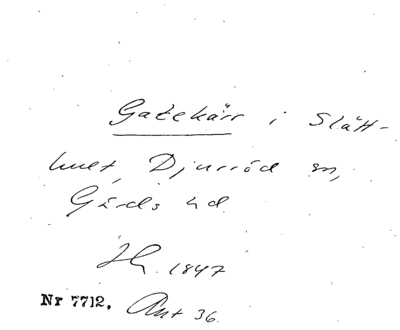 Gatekärr i Slätt-
hult, Djurröd sn,
Gärds hd
1847
Nr 7712. Ant 36.